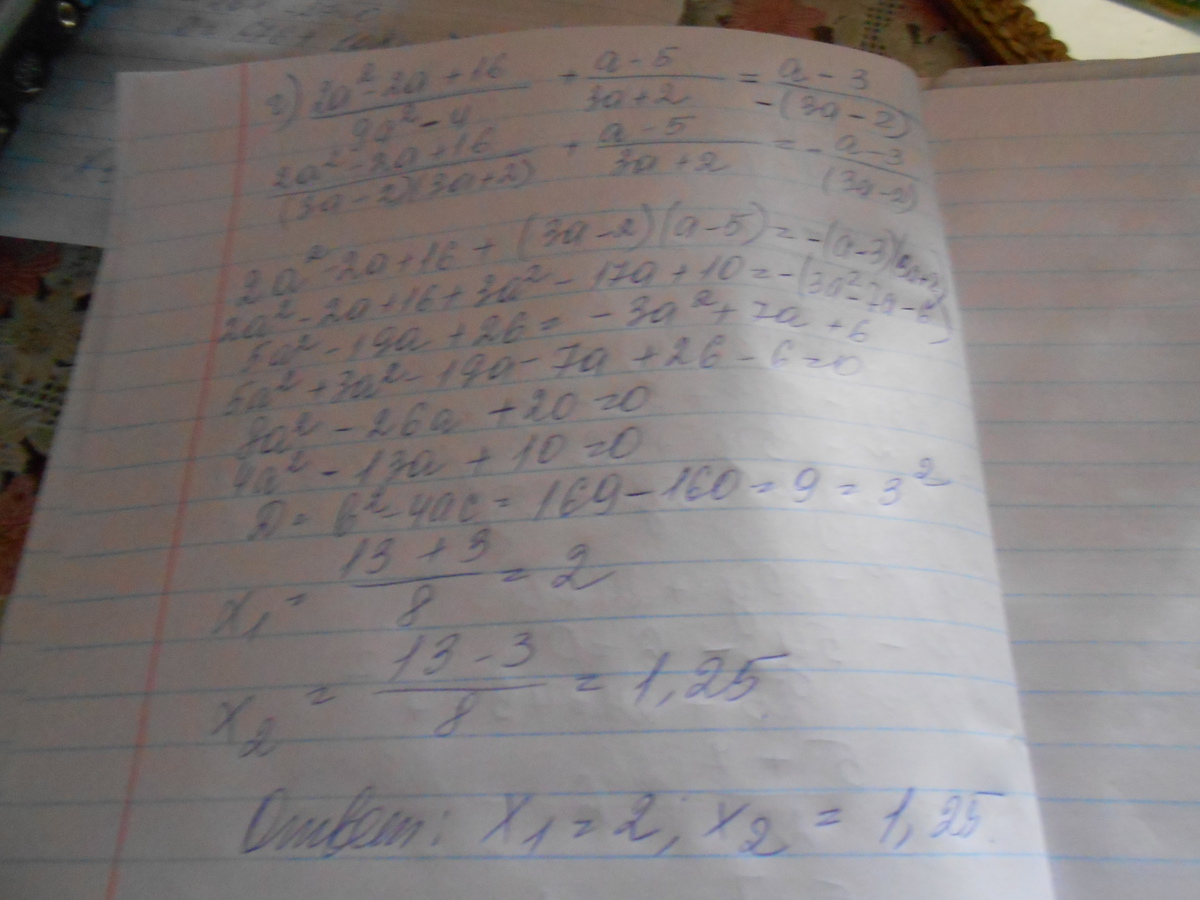 г) (2a² - 2a + 16)/(9a² - 4) + (a - 5)/(3a + 2) = (a - 3)/(-(3a - 2))
(2a² - 2a + 16)/((3a - 2)(3a + 2)) + (a - 5)/(3a + 2) = - (a - 3)/((3a - 2))
2a² - 2a + 16 + (3a - 2)(a - 5) = -(a - 3)(3a + 2)
2a² - 2a + 16 + 3a² - 17a + 10 = -(3a² - 7a - 6)
5a² - 19a + 26 = - 3a² + 7a + 6
5a² + 3a² - 19a - 7a + 26 - 6 = 0
8a² - 26a + 20 = 0
4a² - 13a + 10 = 0
D = b² - 4ac = 169 - 160 = 9 = 3²
x₁ = (13 + 3)/8 = 2
x₂ = (13 - 3)/8 = 1,25
Ответ: x₁ = 2; x₂ = 1,25.